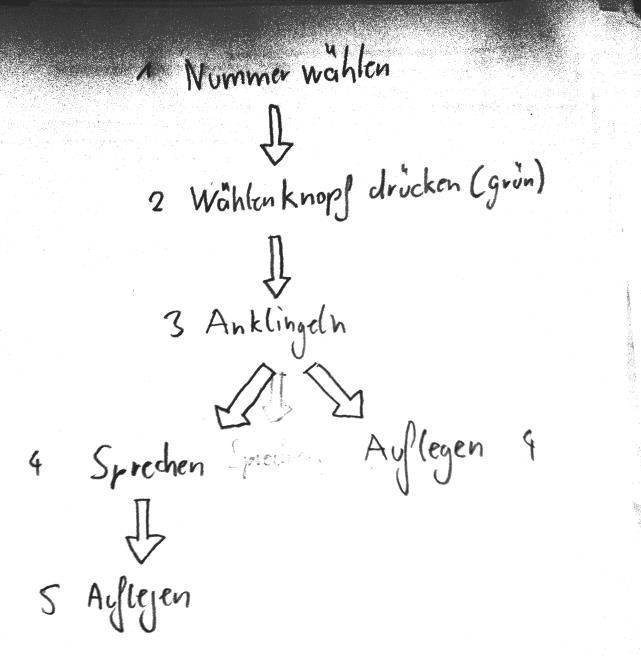 1 Nummer wählen
2 Wählenknopf drücken (grün)
3 Anklingeln
4 Sprechen Sprechen Auflegen 4
5 Auflegen